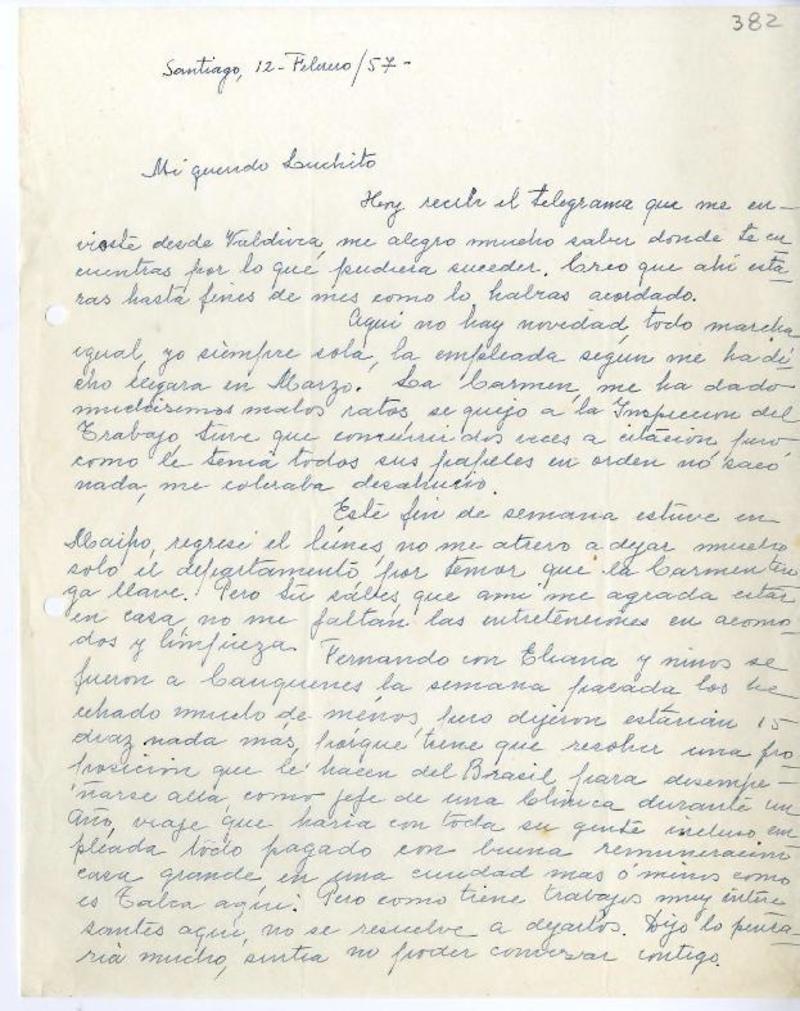 382
Santiago, 12 - Febrero/57 -
Mi querido Luchito
Hoy recibi el telegrama que me en-
viaste desde Valdivia, me alegro mucho saber donde te en
cuentras por lo que pudiera suceder. Creo que ahi esta-
ras hasta fines de mes como lo habras acordado.
Aqui no hay novedad, todo marcha
igual, yo siempre sola, la empleada segun me ha di-
cho llegara en Marzo. La Carmen, me ha dado
muchisimos malos ratos se quijo a la Inspeccion del
Trabajo, tuve que concurrir dos veces a citación, pero
como le tenia todos sus papeles en orden no sacó
nada, me cobraba desahucio.
Este fin de semana estuve en
Maipo, regresé el lunes, no me atrevo a dejar mucho
solo el departamento, por temor que la Carmen ten
ga llave. Pero tú sabes, que ami me agrada estar
en casa, no me faltan las entretenciones en acomo
dos y limpieza. Fernando con Eliana y niños se
fueron a Cauquenes la semana pasada los he
echado mucho de menos, pero dijeron estarian 15
diaz nada mas, porque tiene que resolver una pro
posicion que le hacen del Brasil, para desempe-
ñarse alla, como jefe de una Clinica durante un
Año, viaje que haria con toda su gente incluso em
pleada todo pagado con buena remuneración
casa grande en una cuidad mas o menos como
es Talca aqui. Pero como tiene trabajos muy intere
santes aqui, no se resuelve a dejarlos. Dijo lo pensa-
ria mucho, sintia no poder conversar contigo.